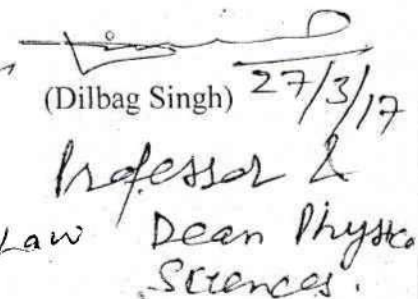 (Dilbag Singh) 27/3/17
Professor &
Law Dean Physica
Sciences.